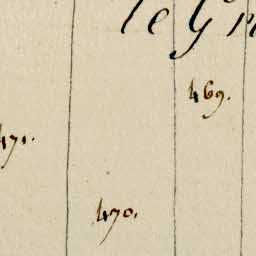 le G
469.
471.
470.